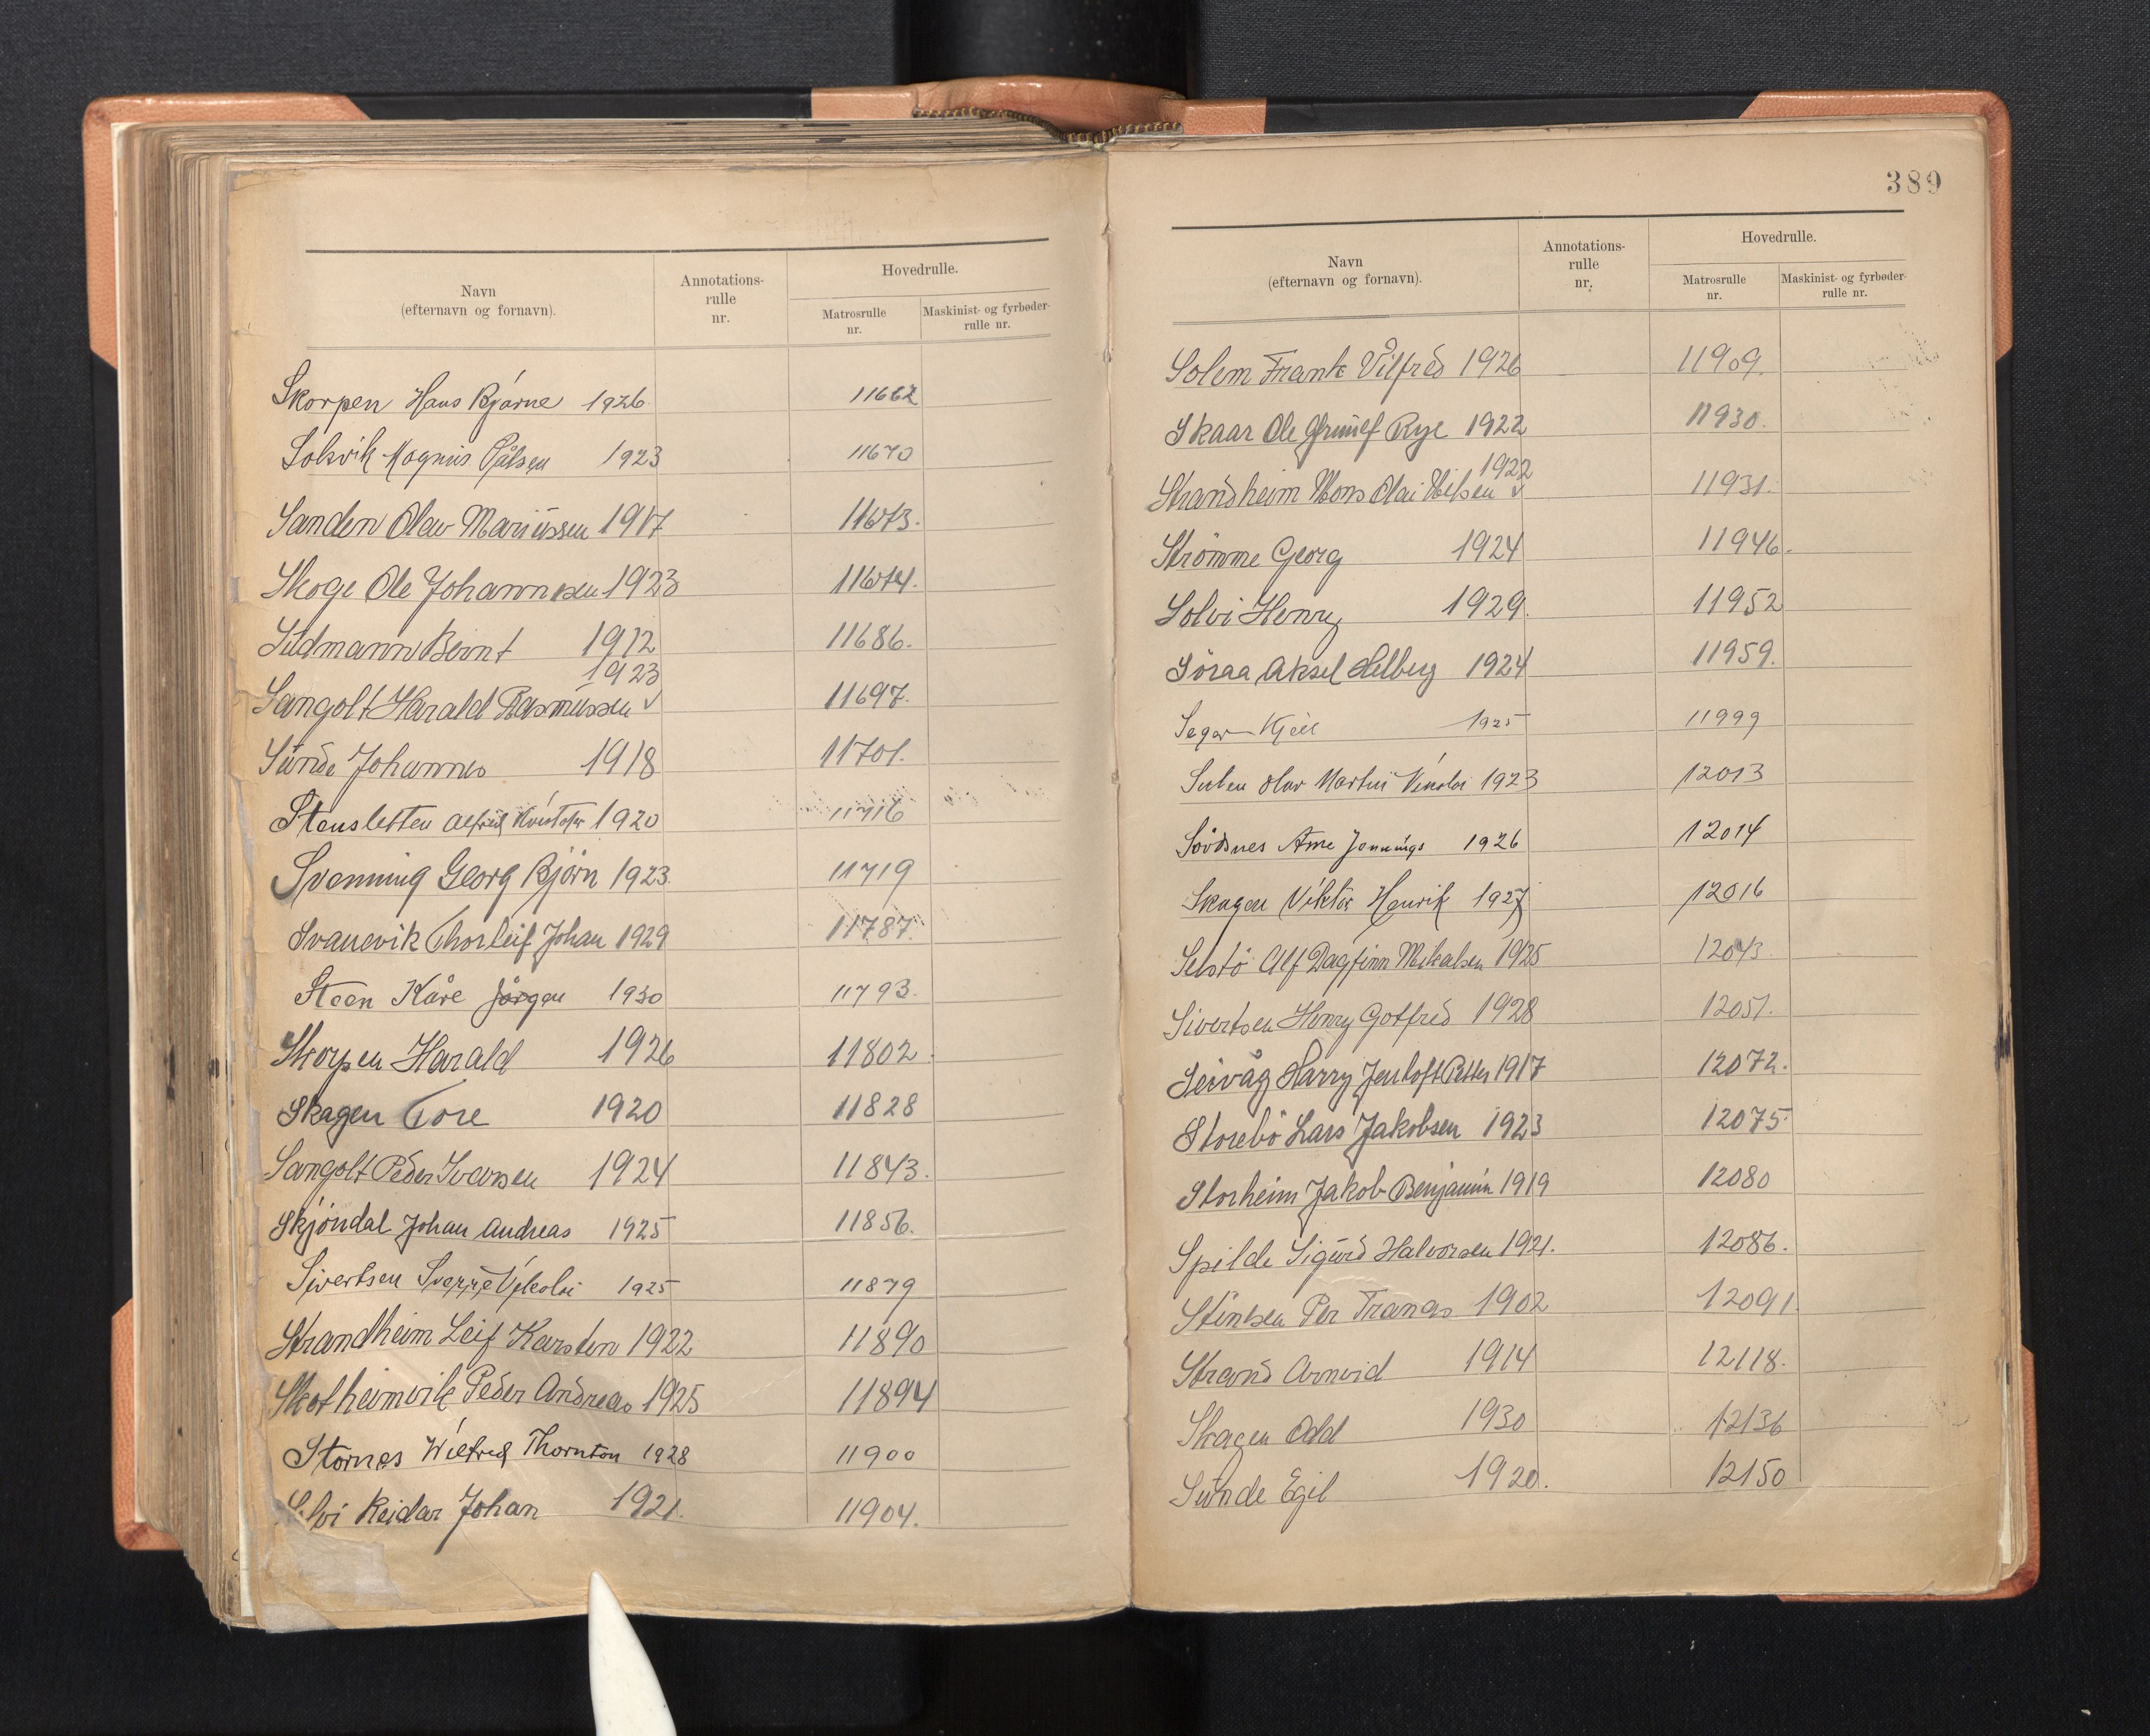 Navn
(efternavn og fornavn).
Annotations-
rulle
nr.
Hovedrulle.
Matrosrulle
nr.
Maskinist- og fyrbøder-
rulle nr.
Skorpen Hans Bjarne 1926 11662
Solsvik Magnus Pålsen 1923 11670
Sanden Olav Mariussen 1917 11673.
Skoge Ole Johannesen 1923 11674.
Südmann Bernt 1912 11686.
1923
Sangolt Harald Rasmussen √ 11697.
Sunde Johannes 1918 11701.
Stensletten Alfred 1920 11716
Svenning Georg Björn 1923. 11719
Svanevik Thorleif Johan 1929 11787.
Steen Kåre Jörgen 1930 11793.
Skorpen Harald 1926 11802.
Skagen Tore 1920 11828
Sangolt Peder Ivarsen 1924 11843.
Skjöndal Johan Andreas 1925 11856.
Sivertsen Sverre Nikolai 1925 11879
Strandheim Leif Karsten 1922 11890
Skotheimvik Peder Andreas 1925 11894
Stornes Wilfred Thornton 1928 11900
Reidar Johan 1921. 11904.
389
Navn
(efternavn og fornavn).
Annotations-
rulle
nr.
Hovedrulle.
Matrosrulle
nr.
Maskinist- og fyrbøder-
rulle nr.
Solem Frank Vilfred 1926 11909.
Skaar Ole Brynulf Rye 1922 11930.
1922
Strandheim Mons Olai Nilsen √ 11931.
Strömme Georg 1924 11946.
Solvi Henry 1929. 11952
Söraa Aksel Helberg 1924 11959.
Kjell 1925 11999
Olav Martin 1923 12013
Sövdsnes Arne Jennings 1926 12014
Skagen Viktor Henrik 1927 12016
Selstö Alf Dagfinn Mikalsen 1925 12043.
Sivertsen Henry Gotfred 1928 12051.
Seivåg Harry Jentoft Petter 1917 12072.
Storebö Lars Jakobsen 1923 12075.
Storheim Jakob Benjamin 1919 12080
Spilde Sigurd Halvorsen 1921. 12086.
Per 1902 12091.
Strand Arnvid 1914 12118.
Skagen Odd 1930 12136
Sunde Egil 1920. 12150